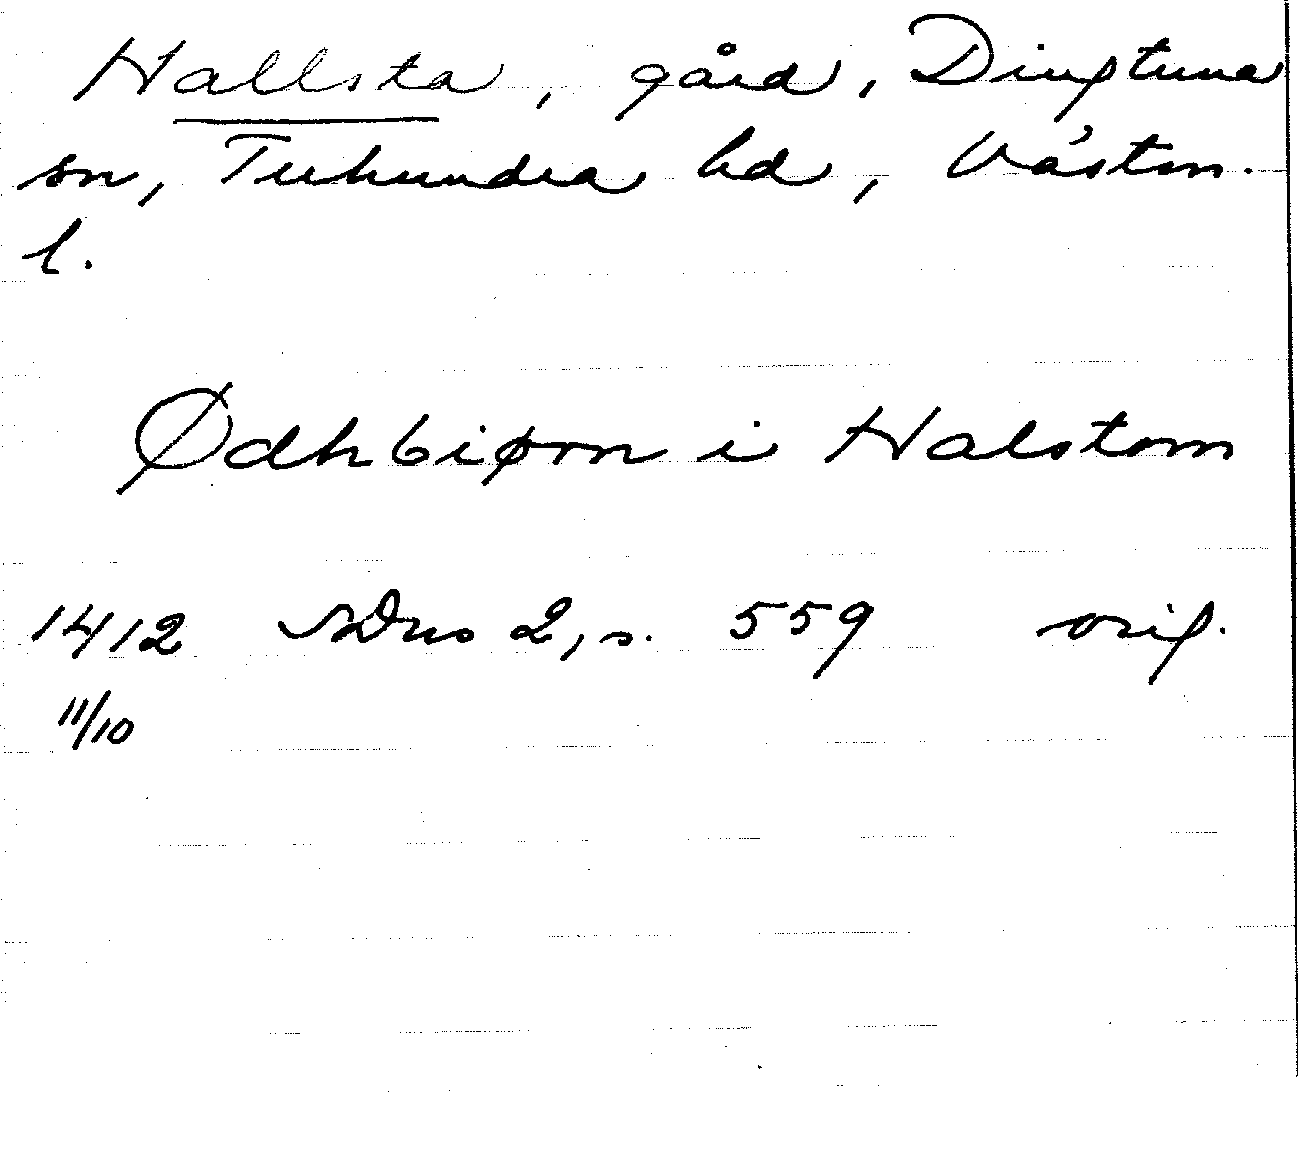 Hallsta, gård, Dingtuna
sn, Tuhundra hd, Västm.
l.
Ødhbiørn i Halstom
1412 SDns 2, s. 559 orig.
11/10